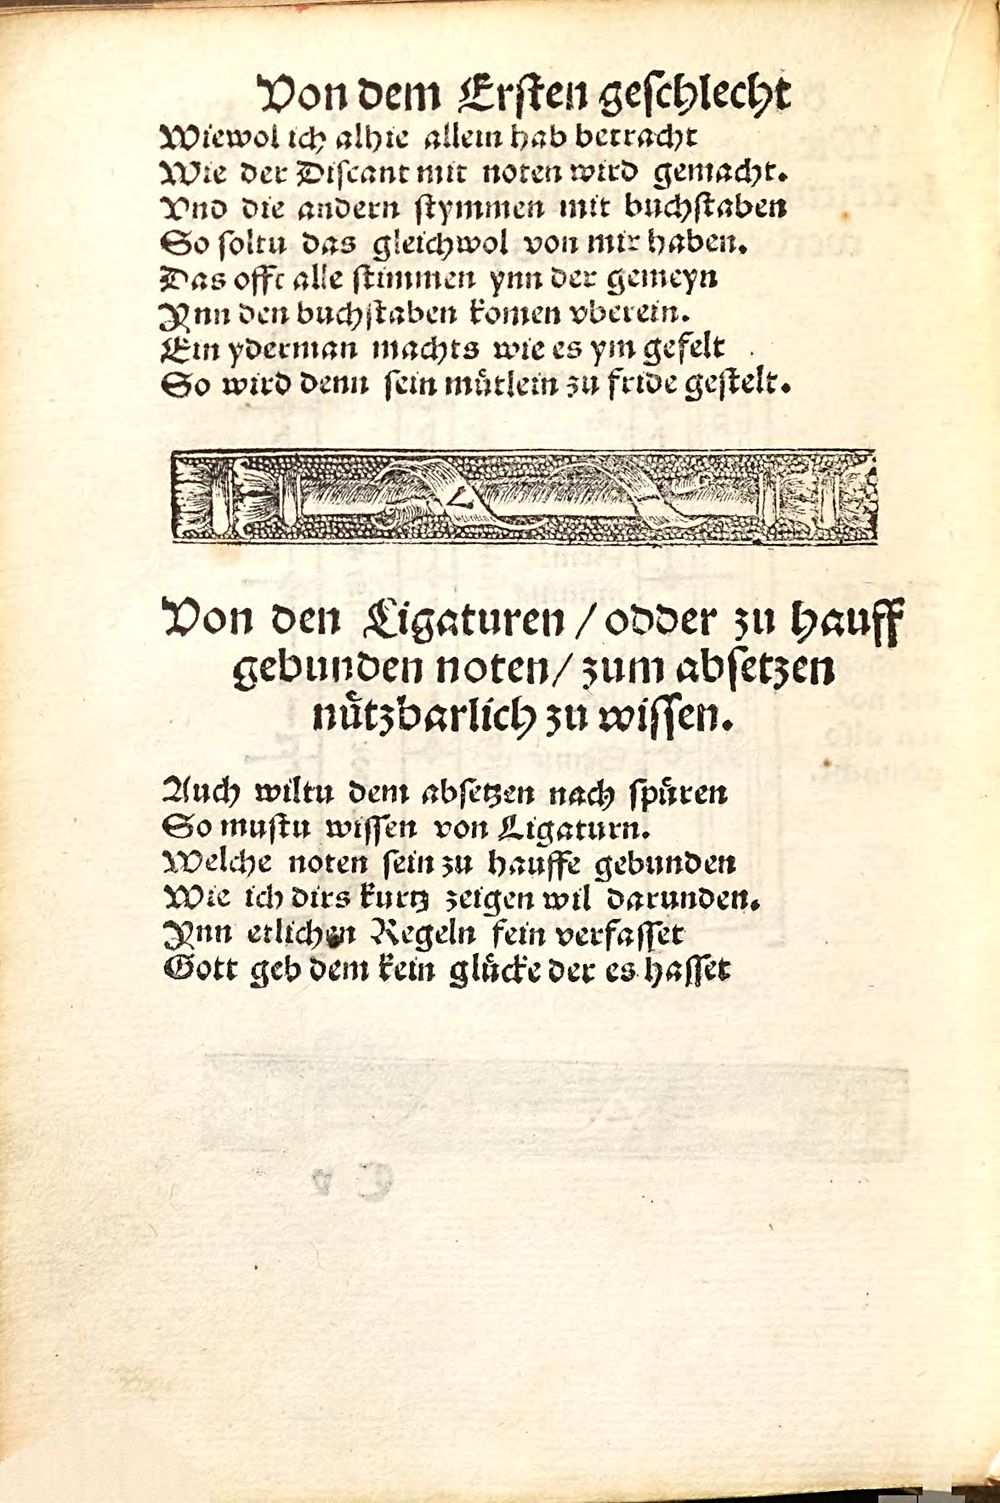 Von dem Ersten geschlecht
Wiewol ich alhie allein hab betracht
Wie der Discant mit noten wird gemacht.
Vnd die andern stymmen mit buchstaben
So soltu das gleichwol von mir haben.
Das offt alle stimmen ynn der gemeyn
Ynn den buchstaben komen vberein.
Ein yderman machts wie es ym gefelt
So wird denn sein mütlein zu fride gestelt.
Von den Ligaturen / odder zu hauff
gebunden noten / zum absetzen
nützbarlich zu wissen.
Auch wiltu dem absetzen nach spüren
So mustu wissen von Ligaturn.
Welche noten sein zu hauffe gebunden
Wie ich dirs kurtz zeigen wil darunden.
Ynn etlichen Regeln fein verfasset
Gott geb dem kein glücke der es hasset